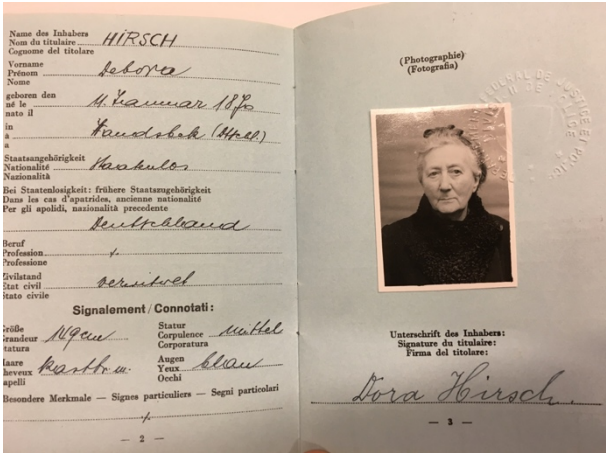 Name des Inhabers
Nom du titulaire HIRSCH
Cognome del titolare
Vorname
Prénom Debora
Nome
geboren den
né le 11. Januar 18
nato il
in
à Wandsbek
a
Staatsangehörigkeit
Nationalité staatenlos
Nazionalità
Bei Staatenlosigkeit: frühere Staatszugehörigkeit
Dans les cas d'apatrides, ancienne nationalité
Per gli apolidi, nazionalità precedente
Deutschland
Beruf
Profession ./.
Professione
Zivilstand
Etat civil verwitwet
Stato civile
Signalement / Connotati:
Größe
Grandeur 149cm
Statura
Statur
Corpulence mittel
Corporatura
Haare
Cheveux
Capelli
Augen
Yeux blau
Occhi
Besondere Merkmale — Signes particuliers — Segni particolari
./.
— 2 —
(Photographie)
(Fotografia)
DE JUSTICE ET POLICE
Unterschrift des Inhabers:
Signature du titulaire:
Firma del titolare:
Dora Hirsch.
— 3 —